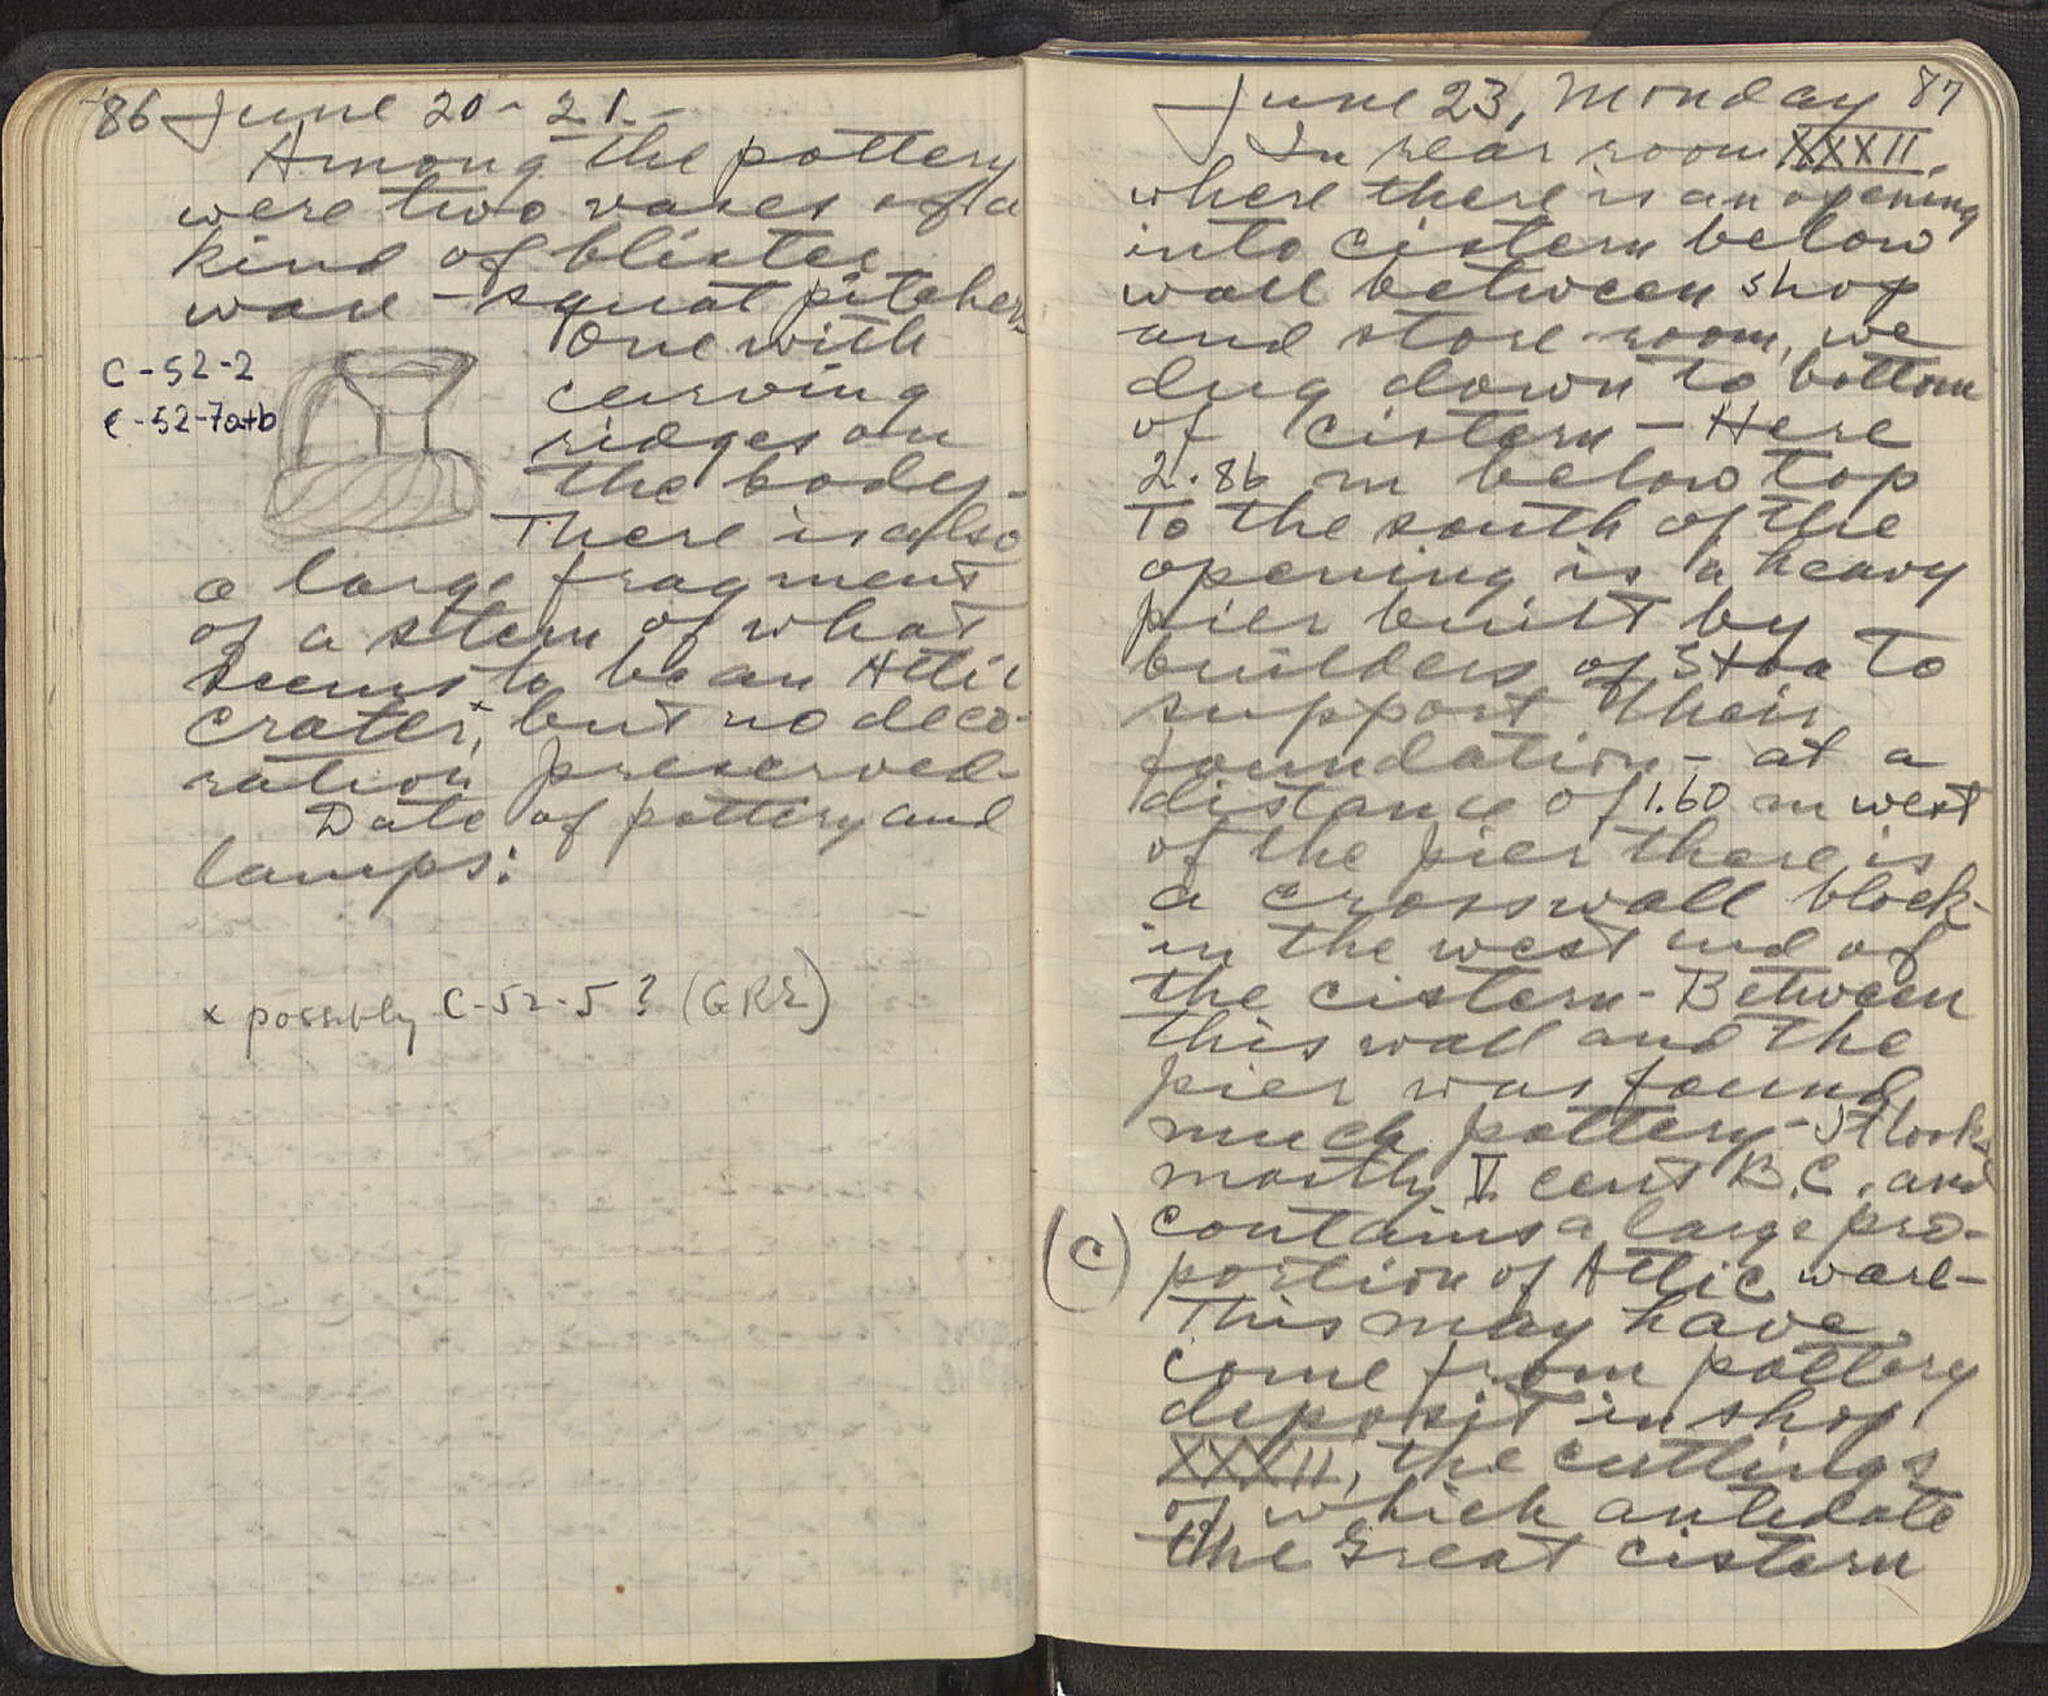 86 June 20 - 21.-
Among the pottery
were two vases of a
kind of blister
ware - squat pitchers
One with
C-52-2
curving
C-52-7a+b
ridges on
the body.
There is also
a large fragment
of a stem of what
seems to be an Attic
crater,x but no deco-
ration preserved-
Date of pottery and
lamps:
x possibly C-52-5? (GRE)
June 23, Monday 87
In rear room XXXII,
where there is an opening
into cistern below
wall between shop
and store-room, we
dug down to bottom
of cistern - Here
2.86 m below top
To the south of the
opening is a heavy
pier built by
builders of Stoa to
support their
foundation - at a
distance of 1.60 m west
of the pier there is
a crosswall block-
in the west end of
the cistern - Between
this wall and the
pier was found
much pottery - It looks
mostly V. cent B.C. and
contains a large pro-
(C)
portion of Attic ware-
This may have
come from pottery
deposit in shop
XXXII, the cuttings
of which antedate
the Great cistern